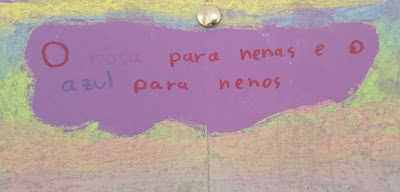 O rosa para nenas e o
azul para nenos